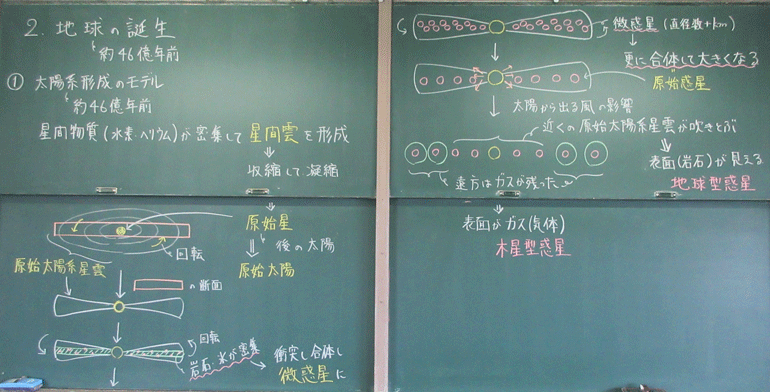 2. 地球の誕生
約46億年前
① 太陽系形成のモデル
約46億年前
星間物質(水素・ヘリウム)が密集して 星間雲 を形成
収縮して凝縮
原始星
後の太陽
原始太陽
回転
原始太陽系星雲
の断面
回転
岩石・氷が密集
衝突し合体し
微惑星に
微惑星(直径数十km)
更に合体して大きくなる
原始惑星
太陽から出る風の影響
近くの原始太陽系星雲が吹きとぶ
表面(岩石)が見える
地球型惑星
遠方はガスが残った
表面がガス(気体)
木星型惑星